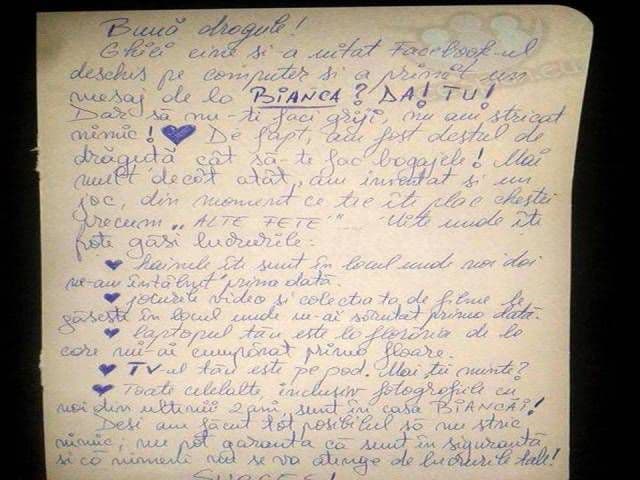 Bună dragule!
Ghici cine și-a uitat Facebook-ul
deschis pe computer și a primit un
mesaj de la BIANCA? DA! TU!
Dar să nu-ți faci griji, nu am stricat
nimic! De fapt, am fost destul de
drăguță cât să-ți fac bagajele! Mai
mult decât atât, am inventat și un
joc, din moment ce ție îți plac chestii
precum „ALTE FETE”... Uite unde îți
poți găsi lucrurile:
hainele îți sunt în locul unde noi doi
ne-am întâlnit prima dată.
jocurile video și colecția ta de filme se
găsesc în locul unde m-ai sărutat prima dată.
laptopul tău este la florăria de la
care mi-ai cumpărat prima floare.
TV-ul tău este pe pod. Mai ții minte?
Toate celelalte, inclusiv fotografiile cu
noi din ultimii 2 ani, sunt în casa BIANCĂI!
Deși am făcut tot posibilul să nu stric
nimic, nu pot garanta că sunt în siguranță
și că nimeni nu se va atinge de lucrurile tale!
SUCCES!